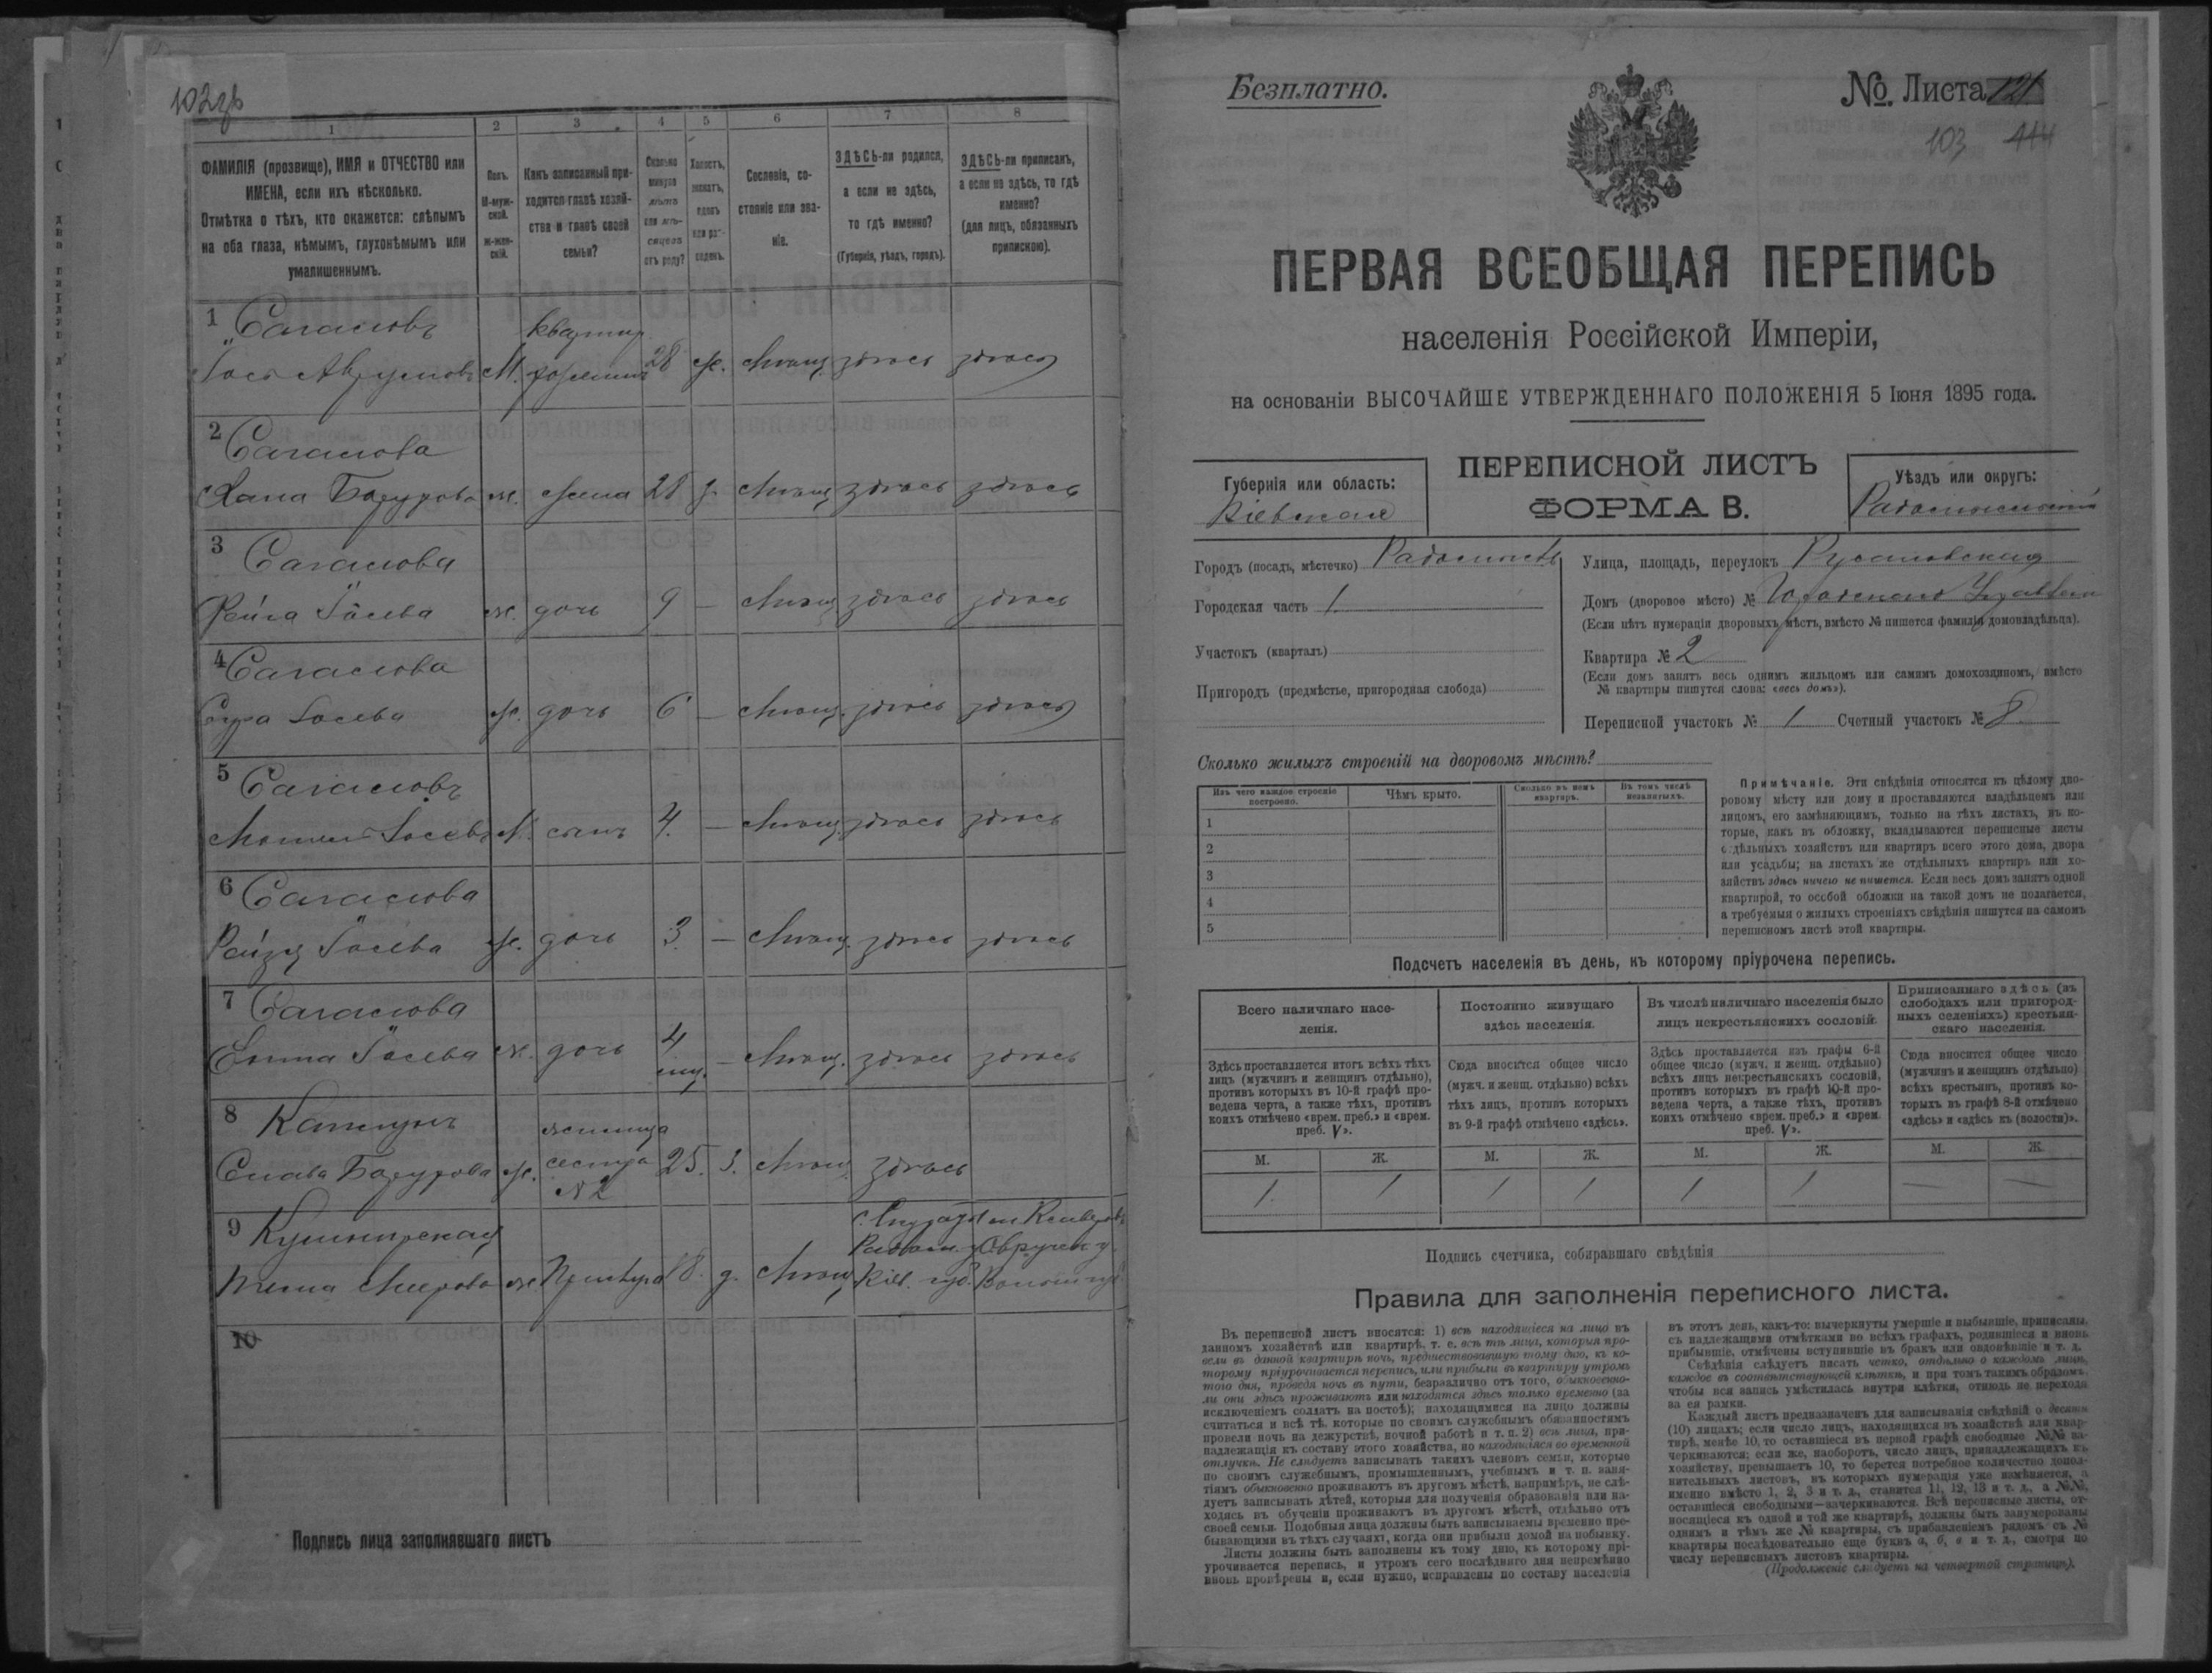 102зв
1
2
3
4
5
6
7
8
ФАМИЛІЯ (прозвище), ИМЯ и ОТЧЕСТВО или
ИМЕНА, если ихъ нѣсколько.
Отмѣтка о тѣхъ, кто окажется: слѣпымъ
на оба глаза, нѣмымъ, глухонѣмымъ или
умалишеннымъ.
Полъ.
М-муж-
ской.
ж-жен-
скій.
Какъ записанный при-
ходится главѣ хозяй-
ства и главѣ своей
семьи?
Сколько
минуло
лѣтъ
или мѣ-
сяцевъ
отъ роду?
Холостъ,
женатъ,
вдовъ
или раз-
веденъ.
Сословіе, со-
стояніе или зва-
ніе.
ЗДѢСЬ-ли родился,
а если не здѣсь,
то гдѣ именно?
(Губернія, уѣздъ, городъ).
ЗДѢСЬ-ли приписанъ,
а если не здѣсь, то гдѣ
именно?
(для лицъ, обязанныхъ
припискою).
1
квартир
М. 28 мѣщ. здѣсь здѣсь
2
Хана ж. жена 28 мѣщ здѣсь здѣсь
3
Фейга ж. дочь 9 — мѣщ здѣсь здѣсь
4
Сура ж. дочь 6 — мѣщ. здѣсь здѣсь
5
М. сынъ 4. — мѣщ. здѣсь здѣсь
6
Рейзя ж. дочь 3. — мѣщ. здѣсь здѣсь
7
ж. дочь 4 — мѣщ. здѣсь здѣсь
8
ж. сестра 25. мѣщ. здѣсь
№ 2
9 Кушнирская
ж. 18. д. мѣщ Кіев. губ.
10
Подпись лица заполнявшаго листъ
Безплатно.
№. Листа 121
103 444
ПЕРВАЯ ВСЕОБЩАЯ ПЕРЕПИСЬ
населенія Россійской Имперіи,
на основаніи ВЫСОЧАЙШЕ УТВЕРЖДЕННАГО ПОЛОЖЕНІЯ 5 Іюня 1895 года.
ПЕРЕПИСНОЙ ЛИСТЪ
ФОРМА В.
Губернія или область:
Кіевская
Уѣздъ или округъ:
Радомысльскій
Городъ (посадъ, мѣстечко) Радомысль
Городская часть 1.
Участокъ (кварталъ)
Пригородъ (предмѣстье, пригородная слобода)
Улица, площадь, переулокъ
Домъ (дворовое мѣсто) №
(Если нѣтъ нумераціи дворовыхъ мѣстъ, вмѣсто № пишется фамилія домовладѣльца).
Квартира № 2
(Если домъ занятъ весь однимъ жильцомъ или самимъ домохозяиномъ, вмѣсто
№ квартиры пишутся слова: «весь домъ»).
Переписной участокъ № 1 Счетный участокъ № 8.
Сколько жилыхъ строеній на дворовомъ мѣстѣ?
Изъ чего каждое строеніе
построено.
Чѣмъ крыто.
Сколько въ немъ
квартиръ.
Въ томъ числѣ
незанятыхъ.
1
2
3
4
5
Примѣчаніе. Эти свѣдѣнія относятся къ цѣлому дво-
ровому мѣсту или дому и проставляются владѣльцемъ или
лицомъ, его замѣняющимъ, только на тѣхъ листахъ, въ ко-
торые, какъ въ обложку, вкладываются переписные листы
отдѣльныхъ хозяйствъ или квартиръ всего этого дома, двора
или усадьбы; на листахъ же отдѣльныхъ квартиръ или хо-
зяйствъ здѣсь ничего не пишется. Если весь домъ занятъ одной
квартирой, то особой обложки на такой домъ не полагается,
а требуемыя о жилыхъ строеніяхъ свѣдѣнія пишутся на самомъ
переписномъ листѣ этой квартиры.
Подсчетъ населенія въ день, къ которому пріурочена перепись.
Всего наличнаго насе-
ленія.
Постоянно живущаго
здѣсь населенія.
Въ числѣ наличнаго населенія было
лицъ некрестьянскихъ сословій.
Приписаннаго здѣсь (въ
слободахъ или пригород-
ныхъ селеніяхъ) крестьян-
скаго населенія.
Здѣсь проставляется итогъ всѣхъ тѣхъ
лицъ (мужчинъ и женщинъ отдѣльно),
противъ которыхъ въ 10-й графѣ про-
ведена черта, а также тѣхъ, противъ
коихъ отмѣчено «врем. преб.» и «врем.
преб. V».
Сюда вносится общее число
(мужч. и женщ. отдѣльно) всѣхъ
тѣхъ лицъ, противъ которыхъ
въ 9-й графѣ отмѣчено «здѣсь».
Здѣсь проставляется изъ графы 6-й
общее число (мужч. и женщ. отдѣльно)
всѣхъ лицъ некрестьянскихъ сословій,
противъ которыхъ въ графѣ 10-й про-
ведена черта, а также тѣхъ, противъ
коихъ отмѣчено «врем. преб.» и «врем.
преб. V».
Сюда вносится общее число
(мужчинъ и женщинъ отдѣльно)
всѣхъ крестьянъ, противъ ко-
торыхъ въ графѣ 8-й отмѣчено
«здѣсь» и «здѣсь къ (волости)».
М. Ж. М. Ж. М. Ж. М. Ж.
1. 1 1 1 1 1 — —
Подпись счетчика, собиравшаго свѣдѣнія
Правила для заполненія переписного листа.
Въ переписной листъ вносятся: 1) всѣ находящіеся на лицо въ
данномъ хозяйствѣ или квартирѣ, т. е. всѣ тѣ лица, которыя про-
вели въ данной квартирѣ ночь, предшествовавшую тому дню, къ ко-
торому пріурочивается перепись, или прибыли въ квартиру утромъ
того дня, проведя ночь въ пути, безразлично отъ того, обыкновенно-
ли они здѣсь проживаютъ или находятся здѣсь только временно (за
исключеніемъ солдатъ на постоѣ); находящимися на лицо должны
считаться и всѣ тѣ, которые по своимъ служебнымъ обязанностямъ
провели ночь на дежурствѣ, ночной работѣ и т. п. 2) всѣ лица, при-
надлежащія къ составу этого хозяйства, но находящіяся во временной
отлучкѣ. Не слѣдуетъ записывать такихъ членовъ семьи, которые
по своимъ служебнымъ, промышленнымъ, учебнымъ и т. п. заня-
тіямъ обыкновенно проживаютъ въ другомъ мѣстѣ, напримѣръ, не слѣ-
дуетъ записывать дѣтей, которыя для полученія образованія или на-
ходясь въ обученіи проживаютъ въ другомъ мѣстѣ, отдѣльно отъ
своей семьи. Подобныя лица должны быть записываемы временно пре-
бывающими въ тѣхъ случаяхъ, когда они прибыли домой на побывку.
Листы должны быть заполнены къ тому дню, къ которому прі-
урочивается перепись, и утромъ сего послѣдняго дня непремѣнно
вновь провѣрены и, если нужно, исправлены по составу населенія
въ этотъ день, какъ-то: вычеркнуты умершіе и выбывшіе, приписаны,
съ надлежащими отмѣтками во всѣхъ графахъ, родившіеся и вновь
прибывшіе, отмѣчены вступившіе въ бракъ или овдовѣвшіе и т. д.
Свѣдѣнія слѣдуетъ писать четко, отдѣльно о каждомъ лицѣ,
каждое въ соотвѣтствующей клѣткѣ, и при томъ такимъ образомъ,
чтобы вся запись умѣстилась внутри клѣтки, отнюдь не переходя
за ея рамки.
Каждый листъ предназначенъ для записыванія свѣдѣній о десяти
(10) лицахъ; если число лицъ, находящихся въ хозяйствѣ или квар-
тирѣ, менѣе 10, то оставшіеся въ первой графѣ свободные №№ за-
черкиваются; если же, наоборотъ, число лицъ, принадлежащихъ къ
хозяйству, превышаетъ 10, то берется потребное количество допол-
нительныхъ листовъ, въ которыхъ нумерація уже измѣняется, а
именно вмѣсто 1, 2, 3 и т. д., ставится 11, 12, 13 и т. д., а №№,
оставшіеся свободными—зачеркиваются. Всѣ переписные листы, от-
носящіеся къ одной и той же квартирѣ, должны быть занумерованы
однимъ и тѣмъ же № квартиры, съ прибавленіемъ рядомъ съ №
квартиры послѣдовательно еще буквъ а, б, в и т. д., смотря по
числу переписныхъ листовъ квартиры.
(Продолженіе слѣдуетъ на четвертой страницѣ).